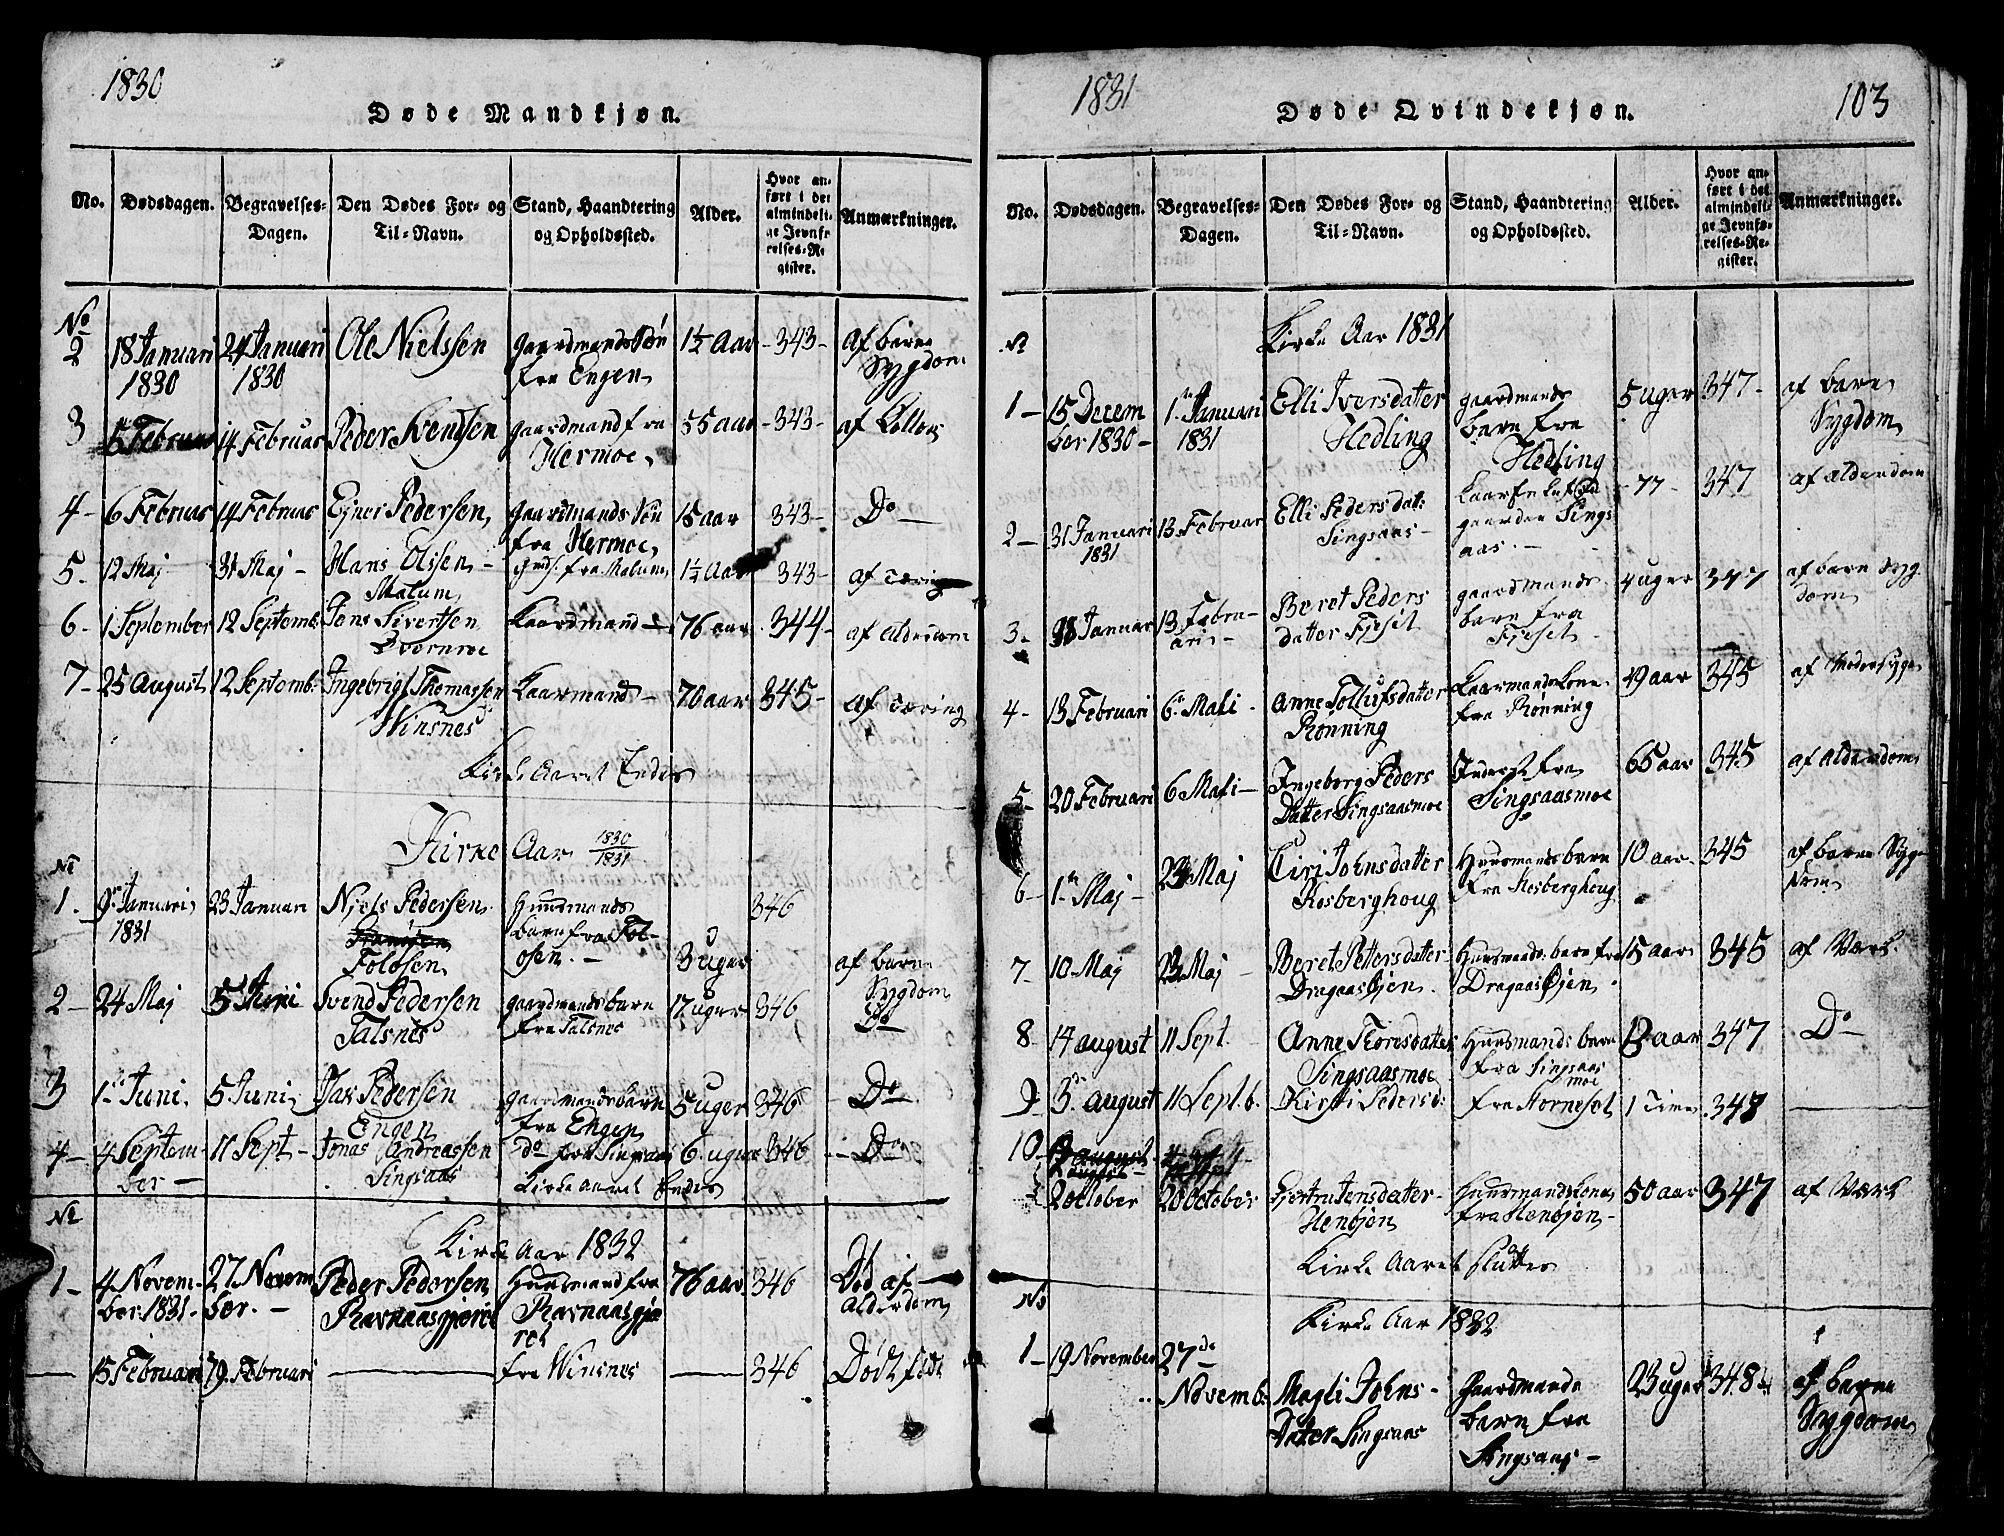 1830
Døde Mandkjøn.
No.
Dødsdagen.
Begravelses-
Dagen.
Den Dødes For- og
Til-Navn.
Stand, Haandtering
og Opholdssted.
Alder.
Hvor an-
ført i det
almindeli-
ge Jevnfø-
relses-Re-
gister.
Anmærkninger.
No
2 18 Januari 24 Januari Ole Nielssen gaardmands Søn 1½ Aar -343- af barne
1830 1830 fra Engen Sygdom
3 5 Februar 14 Februar Peder Svendsen gaardmand fra 55 aar -343- af
Hermoe
4- 6 Februar 14 Februar Ejner Pedersen gaardmands Søn 15 aar 343- Do
fra Hermoe
5- 12 Maj 31 Maj - Hans Olssen - fra Malum 1½ Aar 343- af Tæring
Malum
6- 1 September 12 Septemb. Jens Sivertsen Kaardmand 76 aar 344- af Alderdom
7- 25 August 12 Septemb. Ingebrigt Thomassen Kaarmand - 70 aar 345- af Tæring
Winsnes
Kirke Aaret Endes
Kirke Aar 1830/1831
No
1. 9de Januari 23 Januari Njels Pedersen Huusmands 346
1831 barn fra Fol-
Folosen osen. - 3 uger af barne
Sygdom
2- 24 Maj 5 Juni Svend Pedersen gaardmands barn 17 uger 346 Do
Talsnes fra Talsnes
3 1de Juni 5 Juni Jak Pedersen gaardmands barn 5 uger 346 Do
Engen fra Engen
4- 4 Septem- 11 Sept - Jonas Andreassen do fra Singsaas 6 uger 346 Do
ber - Singsaas Kirke aaret Endes
No
Kirke Aar 1832
1- 4 Novem- 27 Novem Peder Pedersen Huusmand fra 76 aar 346 Død af
ber 1831 ber. - Ravnaasgjæret Ravnaasgjæ Alderdom
ret
15 Februari 19. Februari fra Winsnes 346 Dødfødt
1831
Døde Qvindekjøn.
103
No.
Dødsdagen.
Begravelses-
Dagen.
Den Dødes For- og
Til-Navn.
Stand, Haandtering
og Opholdssted.
Alder.
Hvor an-
ført i det
almindeli-
ge Jevnfø-
relses-Re-
gister.
Anmærkninger.
No
Kirke Aar 1831
1- 15 Decem 1te Januari Elli Iversdatter gaardmands 5 uger 347- af barne
ber 1830- 1831 Hedling barn fra Sygdom
Hedling
2- 31 Januari 13 Februar Elli Pedersdat: 77- 347 af Alderdom
1831 Singsaas - gaarden Sings
aas. -
3- Januar 13 Febru- Beret Peders gaardmands 4 uger 347 af barne Syg
ari- datter Fjeset barn fra dom
Fjeset
4- 13 Februari 6te Maji - Anne Tollufsdatter Kaarmands Kone 49 aar 345 af
Rønning fra Rønning
5- 20 Februari 6 Maji- Ingeborg Peders Inderst fra 65 aar 345 af Alderdom
Datter Singsaasmoe Singsaasmoe
6- 1te Maj - 23 Maj Siri Johnsdatter Huusmands barn 10 aar 345 af barne Syg
Kosberghoug fra Kosberghoug dom
7- 10 Maj 23 Maj - Beret Pettersdatter Huusmands barn fra 15 aar 345 af Værk
Dragaas Øjen. Dragaas Øjen.
8 14 august 11 Sept. Anne Thoresdatter Huusmands barn 13 aar 347 Do
Singsaasmoe fra Singsaas
moe
9- 3. august 11 Sept.b. Kirsti Pedersd: fra Horneset 1 Time 347
10-
2 October 20 October Jensdatter- Huusmands Kone 50 aar 347 af Værk
Henøjen fra Henøjen-
Kirke Aaret Slutter
No
Kirke Aar 1832
1- 19 November 27de
Novemb. Magli Johns- Gaardmands 23 uger 348 af barne
Datter Singsaas barn fra Sygdom
Singsaas-